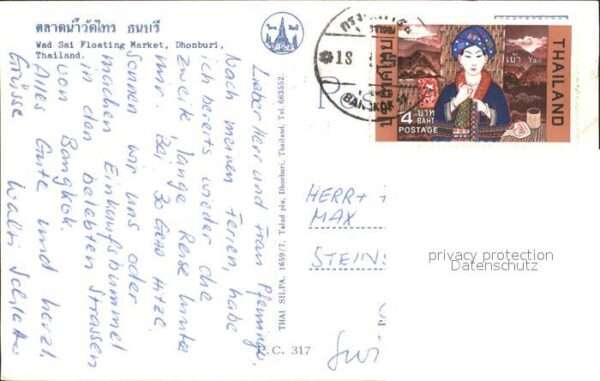 ตลาดน้ำวัดไทร ธนบรี
Wad Sai Floating Market, Dhonburi,
Thailand.
Lieber Herr und Frau Pfenninger,
Nach meinen Ferien, habe
ich bereits wieder die
zweite lange Reise hinter
mir. Bei 30 Grad Hitze
sonnen wir uns oder
machen Einkaufsbummel
in den belebten Strassen
von Bangkok.
Alles Gute und herzl.
Grüsse Walti
THAI SILPA, 1659/7, Talad plu, Dhonburi, Thailand. Tel. 663552.
C. 317
18
BANGKOK
ประเทศไทย
เย้า Yao
THAILAND
4 บาท
BAHT
POSTAGE
HERR+
MAX
STEINS
privacy protection
Datenschutz